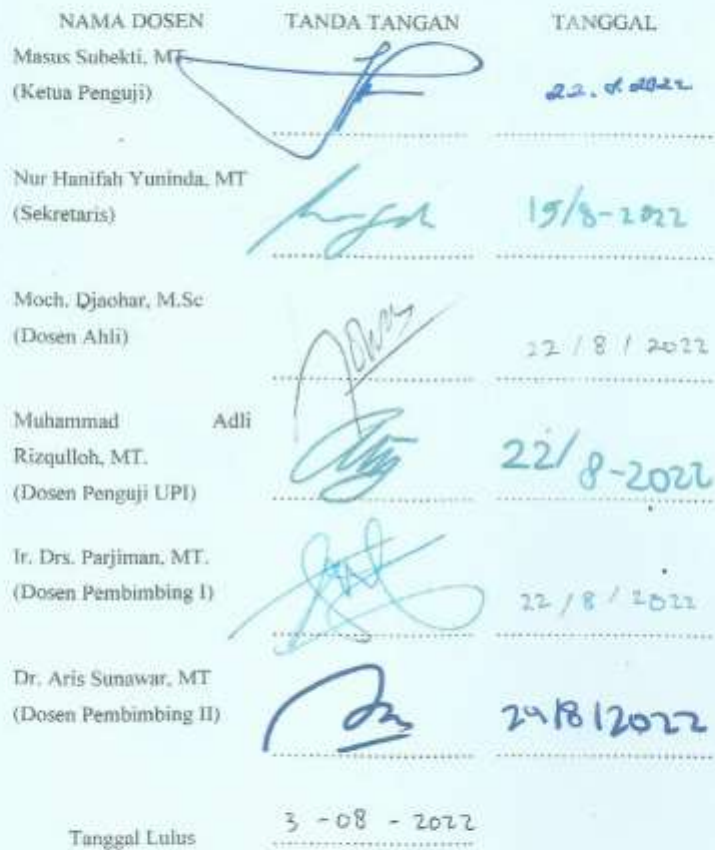 NAMA DOSEN TANDA TANGAN TANGGAL
Masus Subekti, MT
(Ketua Penguji) 22. 8. 2022
Nur Hanifah Yuninda, MT
(Sekretaris) 15/8-2022
Moch. Djaohar, M.Sc
(Dosen Ahli) 22 / 8 / 2022
Muhammad Adli
Rizqulloh, MT. 22/8-2022
(Dosen Penguji UPI)
Ir. Drs. Parjiman, MT.
(Dosen Pembimbing I) 22 / 8 / 2022
Dr. Aris Sunawar, MT
(Dosen Pembimbing II) /8/2022
Tanggal Lulus 3 - 08 - 2022